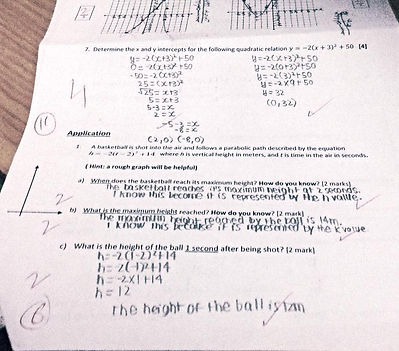 7. Determine the x and y intercepts for the following quadratic relation y = -2(x + 3)² + 50 [4]
y = -2(x+3)²+50
0 = -2(x+3)²+50
-50 = -2(x+3)²
25 = (x+3)²
√25 = x+3
5 = x+3
5-3 = x
2 = x
-5-3 = x
-8 = x
(2,0) (-8,0)
y = -2(x+3)²+50
y = -2(0+3)²+50
y = -2(3)²+50
y = -2x9+50
y = 32
(0,32)
4
11
Application
1. A basketball is shot into the air and follows a parabolic path described by the equation
h = -2(t - 2)² + 14, where h is vertical height in meters, and t is the time in the air in seconds.
(Hint: a rough graph will be helpful)
a) When does the basketball reach its maximum height? How do you know? [2 mark]
The basketball reaches it's maximum height at 2 seconds.
I know this because it is represented by the h value.
2
b) What is the maximum height reached? How do you know? [2 mark]
The maximum height reached by the ball is 14m.
I know this because it is represented by the k value
2
c) What is the height of the ball 1 second after being shot? [2 mark]
h = -2(1-2)²+14
h = -2(-1)²+14
h = -2x1+14
h = 12
The height of the ball is 12m
2
6